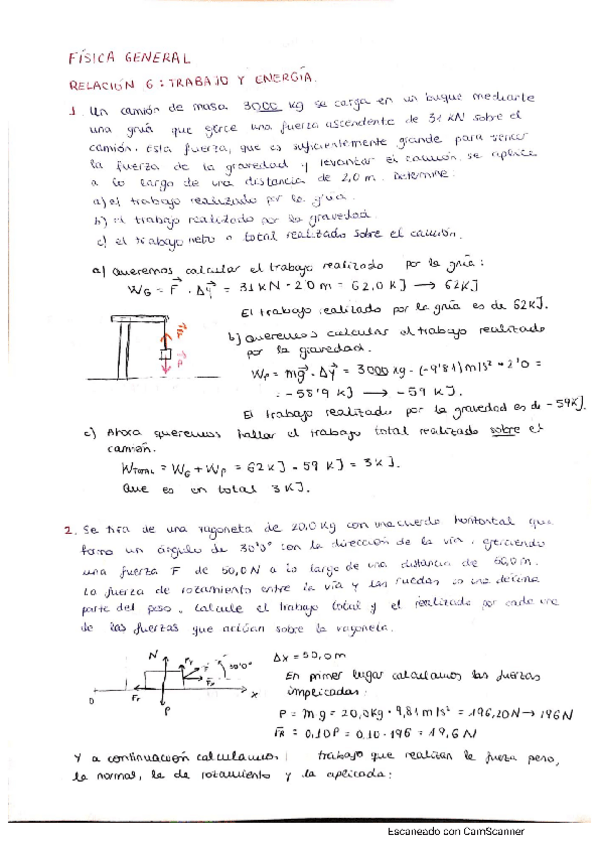 FÍSICA GENERAL
RELACIÓN 6: TRABAJO Y ENERGÍA.
1. Un camión de masa 3000 kg se carga en un buque mediante
una grúa que ejerce una fuerza ascendente de 31 kN sobre el
camión. Esta fuerza, que es suficientemente grande para vencer
la fuerza de la gravedad y levantar el camión, se aplica
a lo largo de una distancia de 2,0 m. Determine:
a) el trabajo realizado por la grúa.
b) el trabajo realizado por la gravedad.
c) el trabajo neto o total realizado sobre el camión.
a) Queremos calcular el trabajo realizado por la grúa:
W_G = F⃗ · Δy⃗ = 31 kN · 2'0 m = 62,0 KJ → 62 KJ
El trabajo realizado por la grúa es de 62 KJ.
b) Queremos calcular el trabajo realizado
por la gravedad.
W_P = mg⃗ · Δy⃗ = 3000 kg · (-9'81) m/s² · 2'0 =
= -58'9 KJ → -59 KJ.
El trabajo realizado por la gravedad es de -59 KJ.
c) Ahora queremos hallar el trabajo total realizado sobre el
camión.
W_TOTAL = W_G + W_P = 62 KJ - 59 KJ = 3 KJ.
Que es en total 3 KJ.
2. Se tira de una vagoneta de 20,0 Kg con una cuerda horizontal que
forma un ángulo de 30'0° con la dirección de la vía, ejerciendo
una fuerza F de 50,0 N a lo largo de una distancia de 50,0 m.
La fuerza de rozamiento entre la vía y las ruedas es una décima
parte del peso. Calcule el trabajo total y el realizado por cada una
de las fuerzas que actúan sobre la vagoneta.
N F 30'0°
F_r P 0 x
Δx = 50,0 m
En primer lugar calculamos las fuerzas
implicadas:
P = m g = 20,0 kg · 9,81 m/s² = 196,20 N → 196 N
F_R = 0,10 P = 0,10 · 196 = 19,6 N
Y a continuación calculamos trabajo que realizan la fuerza peso,
la normal, la de rozamiento y la aplicada:
Escaneado con CamScanner